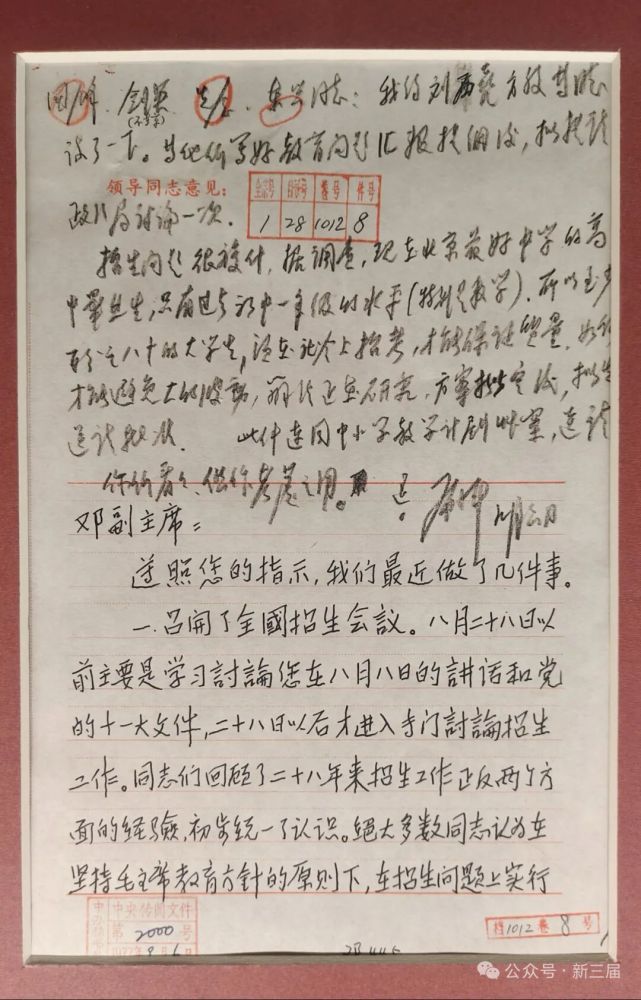 国锋、剑英、先念、东兴同志：我约刘西尧方毅等同志
(不送)
谈了一下。当他们写好教育问题汇报提纲后，拟提请
领导同志意见：
全宗号 目录号 卷号 件号
1 28 1012 8
政治局讨论一次。
招生问题很复杂。据调查，现在北京最好中学的高
中毕业生，只有过去初中一年级的水平（特别是数学），所以至少
百分之八十的大学生，须在社会上招考，才能保证质量。如何
才能避免大的波动，办法正在研究，方案拟定后，拟当
送请批准。 此件连同中小学教学计划草案，送请
你们看看，供作考虑之用。
邓小平 九月六日
邓副主席：
遵照您的指示，我们最近做了几件事。
一、召開了全國招生会議。八月二十八日以
前主要是学习討論您在八月八日的講话和党
的十一大文件，二十八日以后才进入专门討論招生
工作。同志们回顾了二十八年来招生工作正反两个方
面的经驗，初步統一了认识。絕大多数同志认为在
坚持毛主席教育方針的原则下，在招生问题上实行
中央传阅文件
第2000号
1977年9月6日
档1012卷8号
公众号·新三届